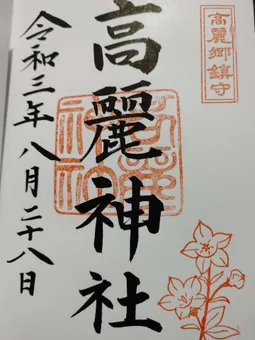 高麗郷鎮守
高麗神社
令和三年八月二十八日